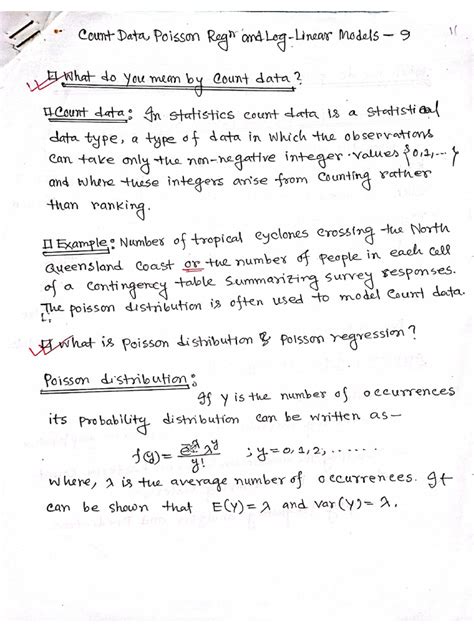 Count Data, Poisson Regⁿ and Log-Linear Models - 9
What do you mean by Count data?
Count data: In statistics count data is a statistical
data type, a type of data in which the observations
can take only the non-negative integer values {0,1,... }
and where these integers arise from counting rather
than ranking.
Example: Number of tropical cyclones crossing the North
Queensland Coast or the number of people in each cell
of a contingency table summarizing survey responses.
The poisson distribution is often used to model Count data.
What is Poisson distribution & Poisson regression?
Poisson distribution:
If y is the number of occurrences
its probability distribution can be written as—
f(y) = e^-λ λ^y / y! ; y = 0, 1, 2, ......
where, λ is the average number of occurrences. It
can be shown that E(Y) = λ and var(Y) = λ.